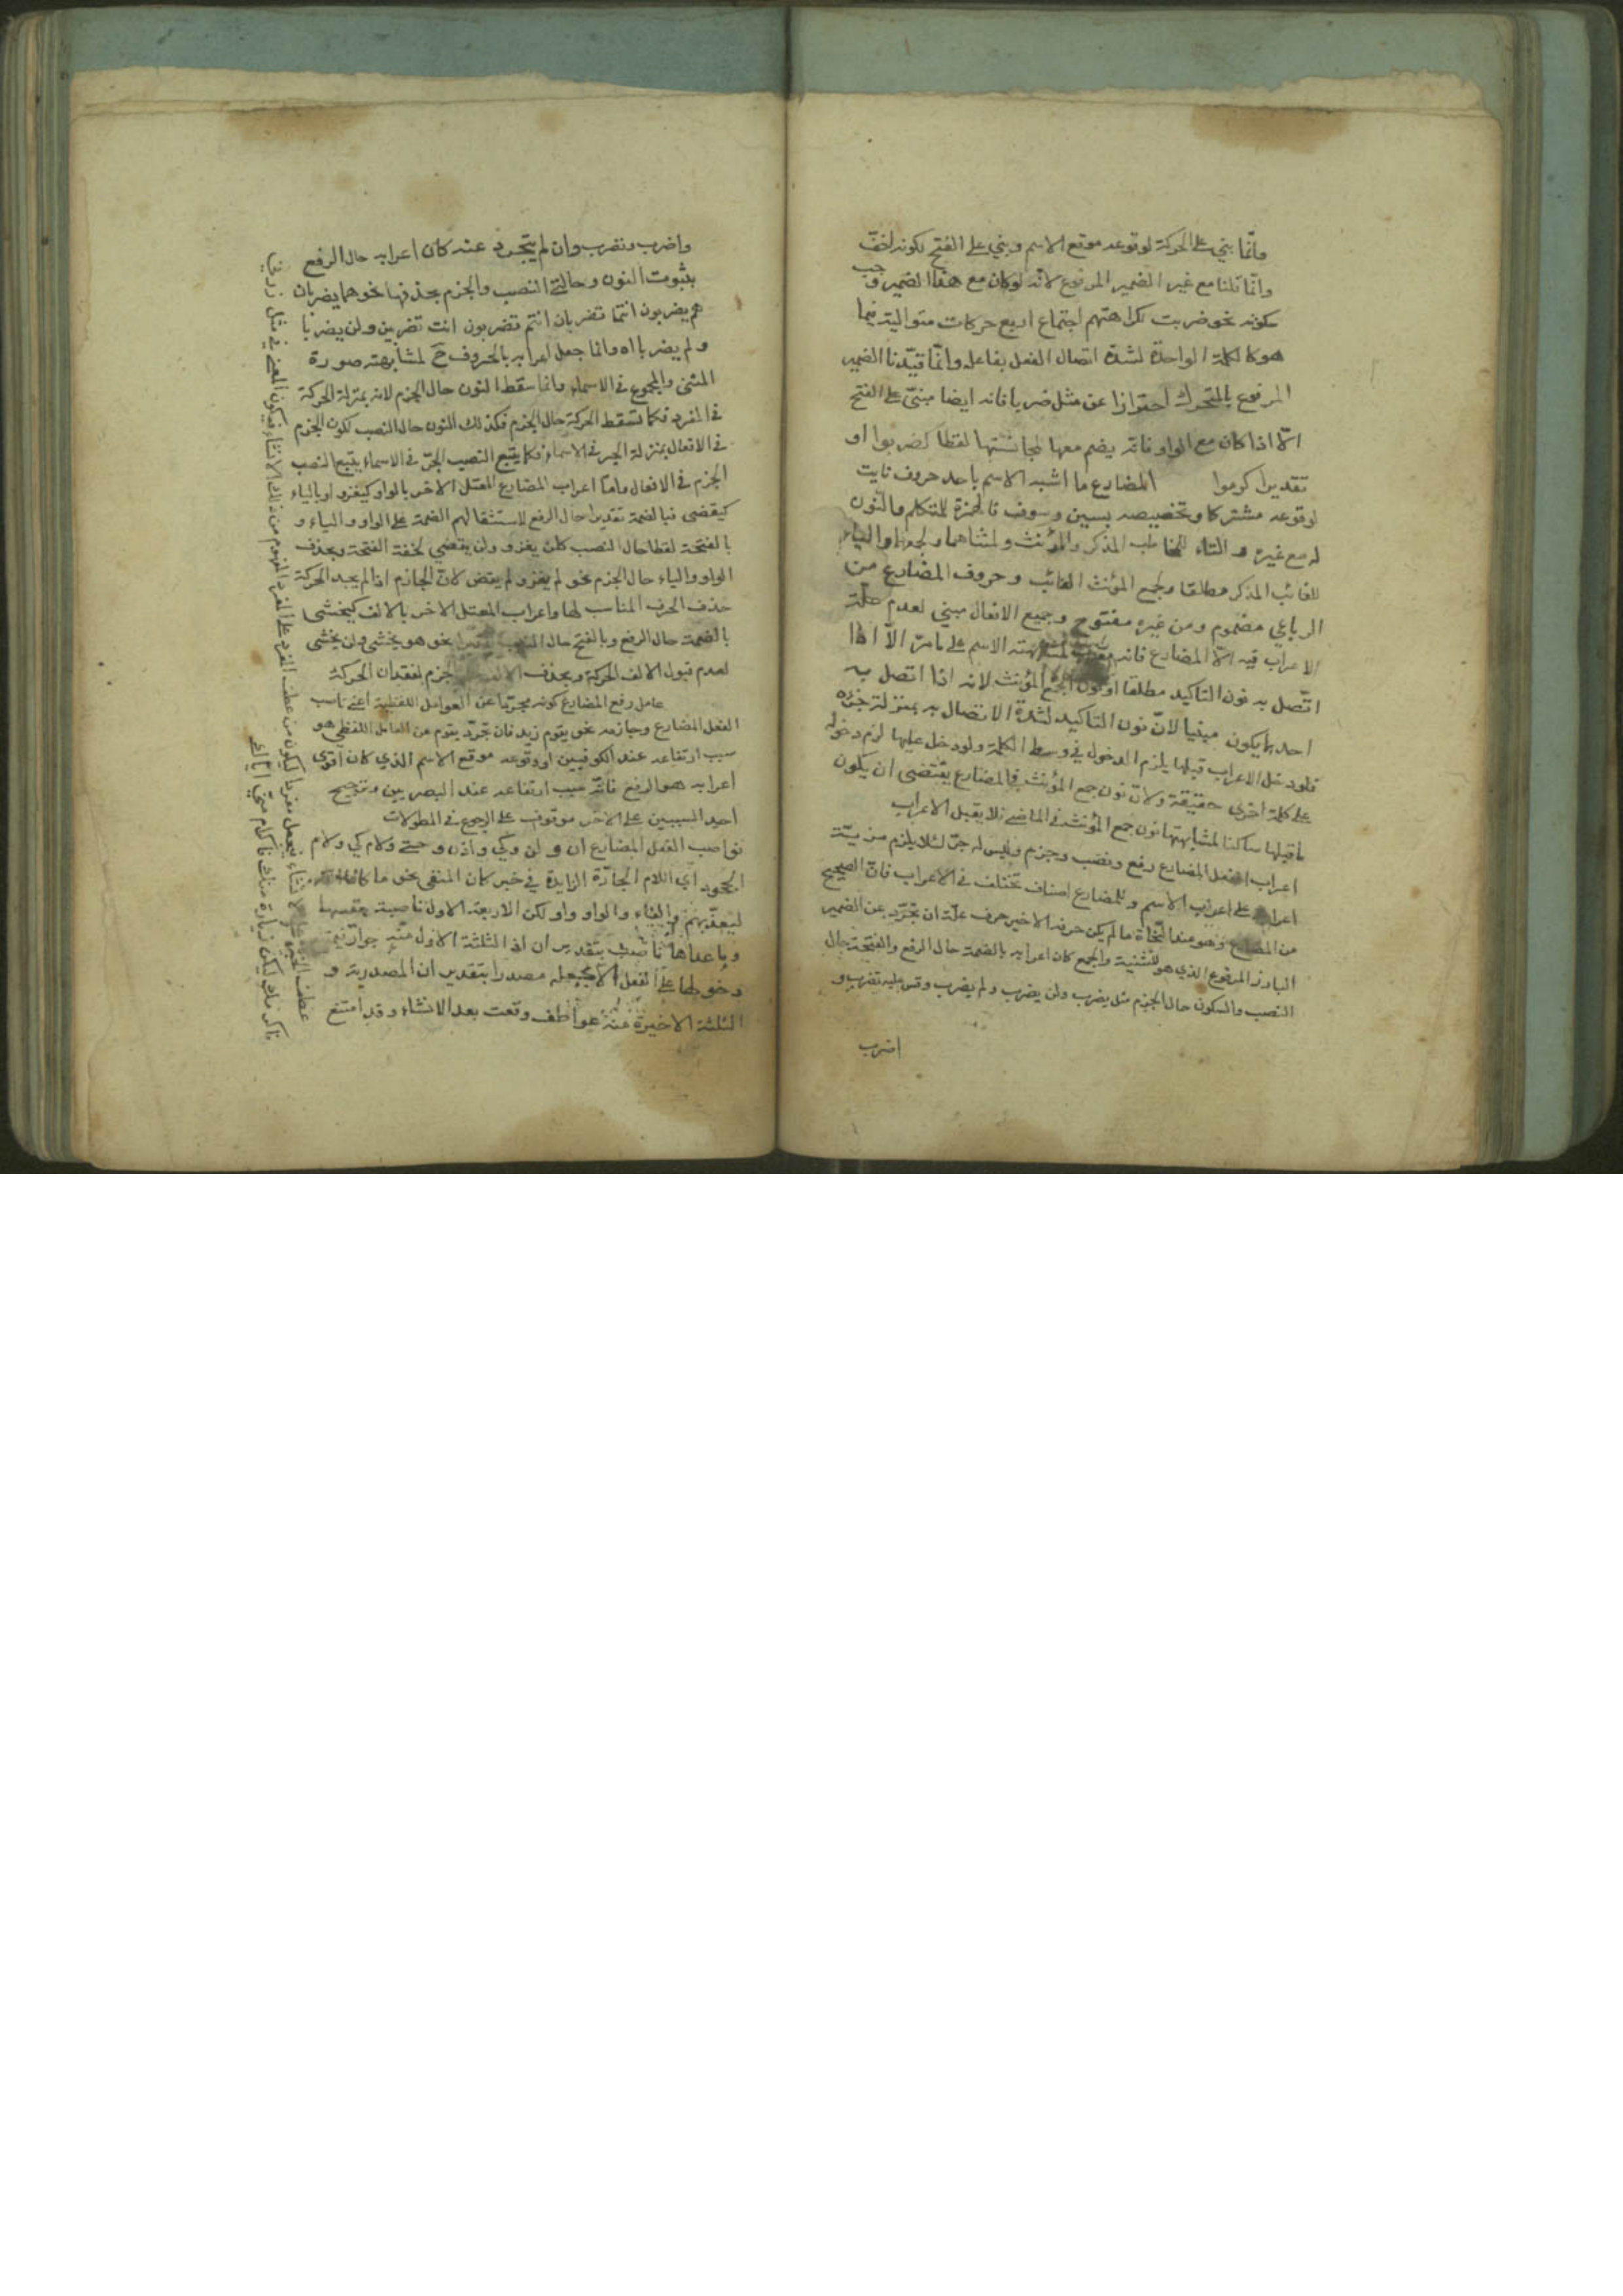 وانّما بني على الحركة لوقوعه موقع الاسم وبني على الفتح لكونه اخفّ
وانّما قلنا مع غير الضمير المرفوع لانّه لو كان مع هذا الضمير وجب
سكونه نحو ضربت لكراهتهم اجتماع اربع حركات متوالية فيما
هو كالكلمة الواحدة لشدّة اتصال الفعل بفاعله وانّما قيّدنا الضمير
المرفوع بالمتحرك احترازا عن مثل ضربا فانه ايضا مبنيّ على الفتح
الّا اذا كان مع الواو فانّه يضم معها لمجانستها لفظا كضربوا او
تقديرا كرموا المضارع ما اشبه الاسم باحد حروف نايت
لوقوعه مشتركا وتخصيصه بسين وسوف فالهمزة للمتكلم والنّون
له مع غيره والتاء للمخاطب المذكر والمؤنث ولمثناهما ولجمعهما والياء
للغائب المذكر مطلقا ولجمع المؤنث الغائب وحروف المضارع من
الرباعي مضموم ومن غيره مفتوح وجميع الافعال مبني لعدم علّة
الاعراب فيه الّا المضارع فانه معرب لمشابهته الاسم على ما مرّ الّا اذا
اتّصل به نون التاكيد مطلقا او نون الجمع المؤنث لانه اذا اتصل به
احدهما يكون مبنيا لانّ نون التاكيد لشدّة الاتصال به بمنزلة جزئه
فلو دخل الاعراب قبلها يلزم الدخول في وسط الكلمة ولو دخل عليها لزم دخوله
على كلمة اخرى حقيقة ولانّ نون جمع المؤنث في المضارع يقتضى ان يكون
ما قبلها ساكنا لمشابهتها نون جمع المؤنث في الماضي فلا يقبل الاعراب
اعراب الفعل المضارع رفع ونصب وجزم وليس له جرّ لئلا يلزم مزيّة
اعرابه على اعراب الاسم وللمضارع اصناف تختلف في الاعراب فانّ الصحيح
من المضارع وهو عند النّحاة ما لم يكن حرفه الاخير حرف علّة ان تجرّد عن الضمير
البارز المرفوع الذي هو للتثنية والجمع كان اعرابه بالضمة حال الرفع والفتحة حال
النصب والسكون حال الجزم مثل يضرب ولن يضرب ولم يضرب وقس عليه تضرب و
اضرب
واضرب ونضرب وان لم يتجرد عنه كان اعرابه حال الرفع
بثبوت النون وحالتي النصب والجزم بحذفها نحو هما يضربان
هم يضربون انتما تضربان انتم تضربون انت تضربين ولن يضربا
ولم يضربا اه وانما جعل اعرابه بالحروف ح لمشابهته صورة
المثنى والمجموع في الاسماء وانما سقط النون حال الجزم لانه بمنزلة الحركة
في المفرد فكما تسقط الحركة حال الجزم فكذلك النون حال النصب لكون الجزم
في الافعال بمنزلة الجر في الاسماء فكما يتبع النصب الجرّ في الاسماء يتبع النصب
الجزم في الافعال وامّا اعراب المضارع المعتل الاخر بالواو كيغزو او بالياء
كيقضى فبالضمة تقديرا حال الرفع لاستثقالهم الضمة على الواو والياء و
بالفتحة لفظا حال النصب كلن يغزو ولن يقضي لخفة الفتحة وبحذف
الواو والياء حال الجزم نحو لم يغز ولم يقض لانّ الجازم اذا لم يجد الحركة
حذف الحرف المناسب لها واعراب المعتل الاخر بالالف كيخشى
بالضمة حال الرفع وبالفتح حال النصب تقديرا نحو هو يخشى ولن يخشى
لعدم قبول الالف الحركة وبحذف الالف جزم لفقدان الحركة
عامل رفع المضارع كونه مجرّدا عن العوامل اللفظية اعني ناصب
الفعل المضارع وجازمه نحو يقوم زيد فان تجرّد يقوم من العامل اللفظي هو
سبب ارتفاعه عند الكوفيين او وقوعه موقع الاسم الذي كان اقوى
اعرابه هو الرفع فانّه سبب ارتفاعه عند البصريين وترجيح
احد السببين على الاخر موقوف على الرجوع في المطولات
نواصب الفعل المضارع ان ولن وكي واذن وحتى ولام كي ولام
الجحود اي اللام الجارّة الزايدة في خبر كان المنفى نحو ما كان الله
ليعذّبهم والفاء والواو واو لكن الاربعة الاول ناصبة بنفسها
وما عداها ناصب بتقدير ان اذ الثلثة الاول منه جوارّ فيمتنع
دخولها على الفعل الا بجعله مصدرا بتقدير ان المصدرية و
الثلثة الاخيرة منه عواطف وقعت بعد الانشاء وقد امتنع
عطف الخبر على الانشاء فيجعل مفردا ليكون من عطف المفرد على المفرد المفهوم من ذلك الانشاء فيكون المعنى في مثل زرني
فاكرمك ليكن زيارة منك فاكرام منّي ايّاك